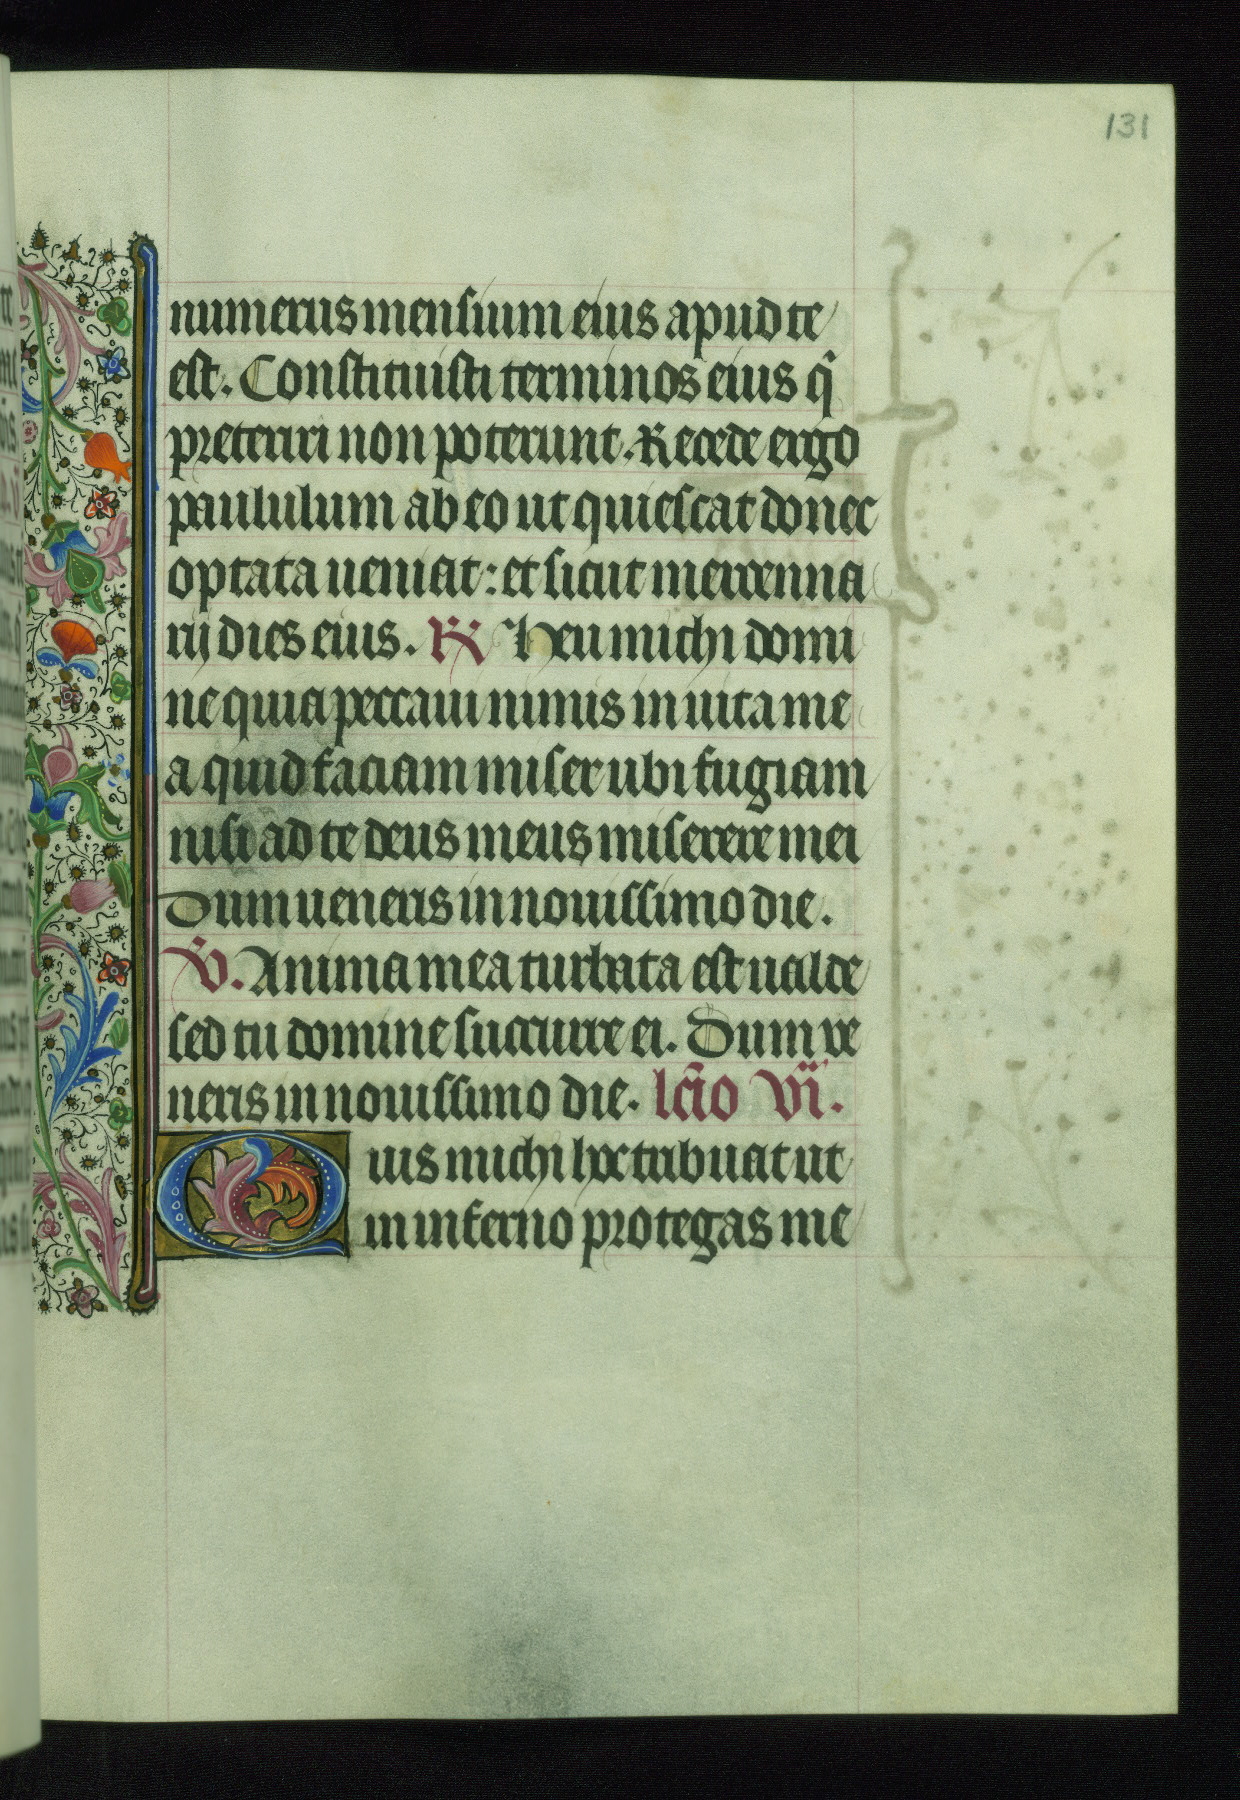 131
numerus mensium eius apud te
est. Constituisti terminos eius q̄
preteriri non poterunt. Recede ergo
paululum ab eo ut quiescat donec
optata ueniat: et sicut mercenna
rij dies eius. R Heu michi domi
ne quia peccaui nimis in uita me
a quid faciam miser ubi fugiam
nisi ad te deus meus miserere mei
Dum ueneris in nouissimo die.
V. Anima mea turbata est ualde
sed tu domine succurre ei. Dum ve
neris in nouissimo die. lcīo vi.
Quis michi hoc tribuat ut
in inferno protegas me